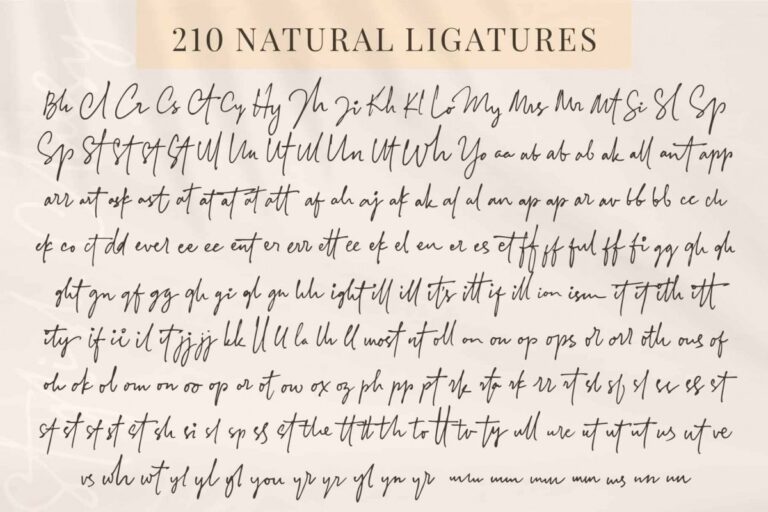 210 NATURAL LIGATURES
Bh Cl Cr Cs Ct Cy Hy Jh Ji Kh Kl Lo My Mrs Mr Mt Si Sl Sp
Sp St St St St Ul Un Ut Ul Un Ut Wh Yo aa ab ab ab ak all ant app
arr art ask ast at at at at att af ah aj ak ak al al an ap ap ar av bb bb cc ch
ck co ct dd ever ee ee ent er err ett ee ek el en er es et ff ff ful ff fi gg gh gh
ght gn gf gg gh gi gl gn hh ight ill ill it's itt if ill ion ism it it ith itt
ity if ii il it jj jj kk ll ll la lh ll most nt oll on ou op ops or orr oth ous of
oh ok ol om on oo op or ot ow ox oz ph pp pt rk rta rk rr rt sl sf sl ss ss st
st st st st st sh si sl sp ss st the tt tt th to tt tv ty ull ure ut ut ut us ut ve
vs wh wt yl yl yl you yr yr yl yn yr